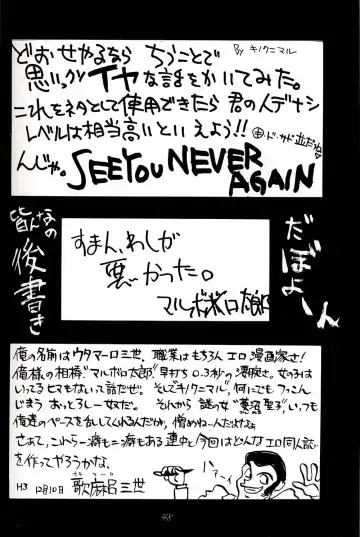 どおせやるなら ちうことで
By キノクニマル
思いっクソ イヤな話をかいてみた。
これをネタとして使用できたら 君の人デナシ
レベルは相当高いといえよう!!
んじゃ。SEE YOU NEVER
AGAIN
皆んなの
後書き
だぼよ〜ん
すまん、わしが
悪かった。
マルボボロ太郎
俺の名前はウタマーロ三世。職業はもちろん エロ漫画家さ!
俺様の相棒"マルボロ太郎"早打ち0.3秒の凄腕。女の子は
いってるヒマもないって話だぜ。そして"キノクニマル"何にでもファこん
じまう おっとろしー女だ。それから 謎の女"菱沼聖子"いつも
俺達のペースを
憎めねー人だけなぁ
さぁて、これら一癖も二癖もある連中と今回はどんなエロ同人誌
を作ってやろうかな。
H3 12月10日 歌麻呂三世
ハァーイ
48